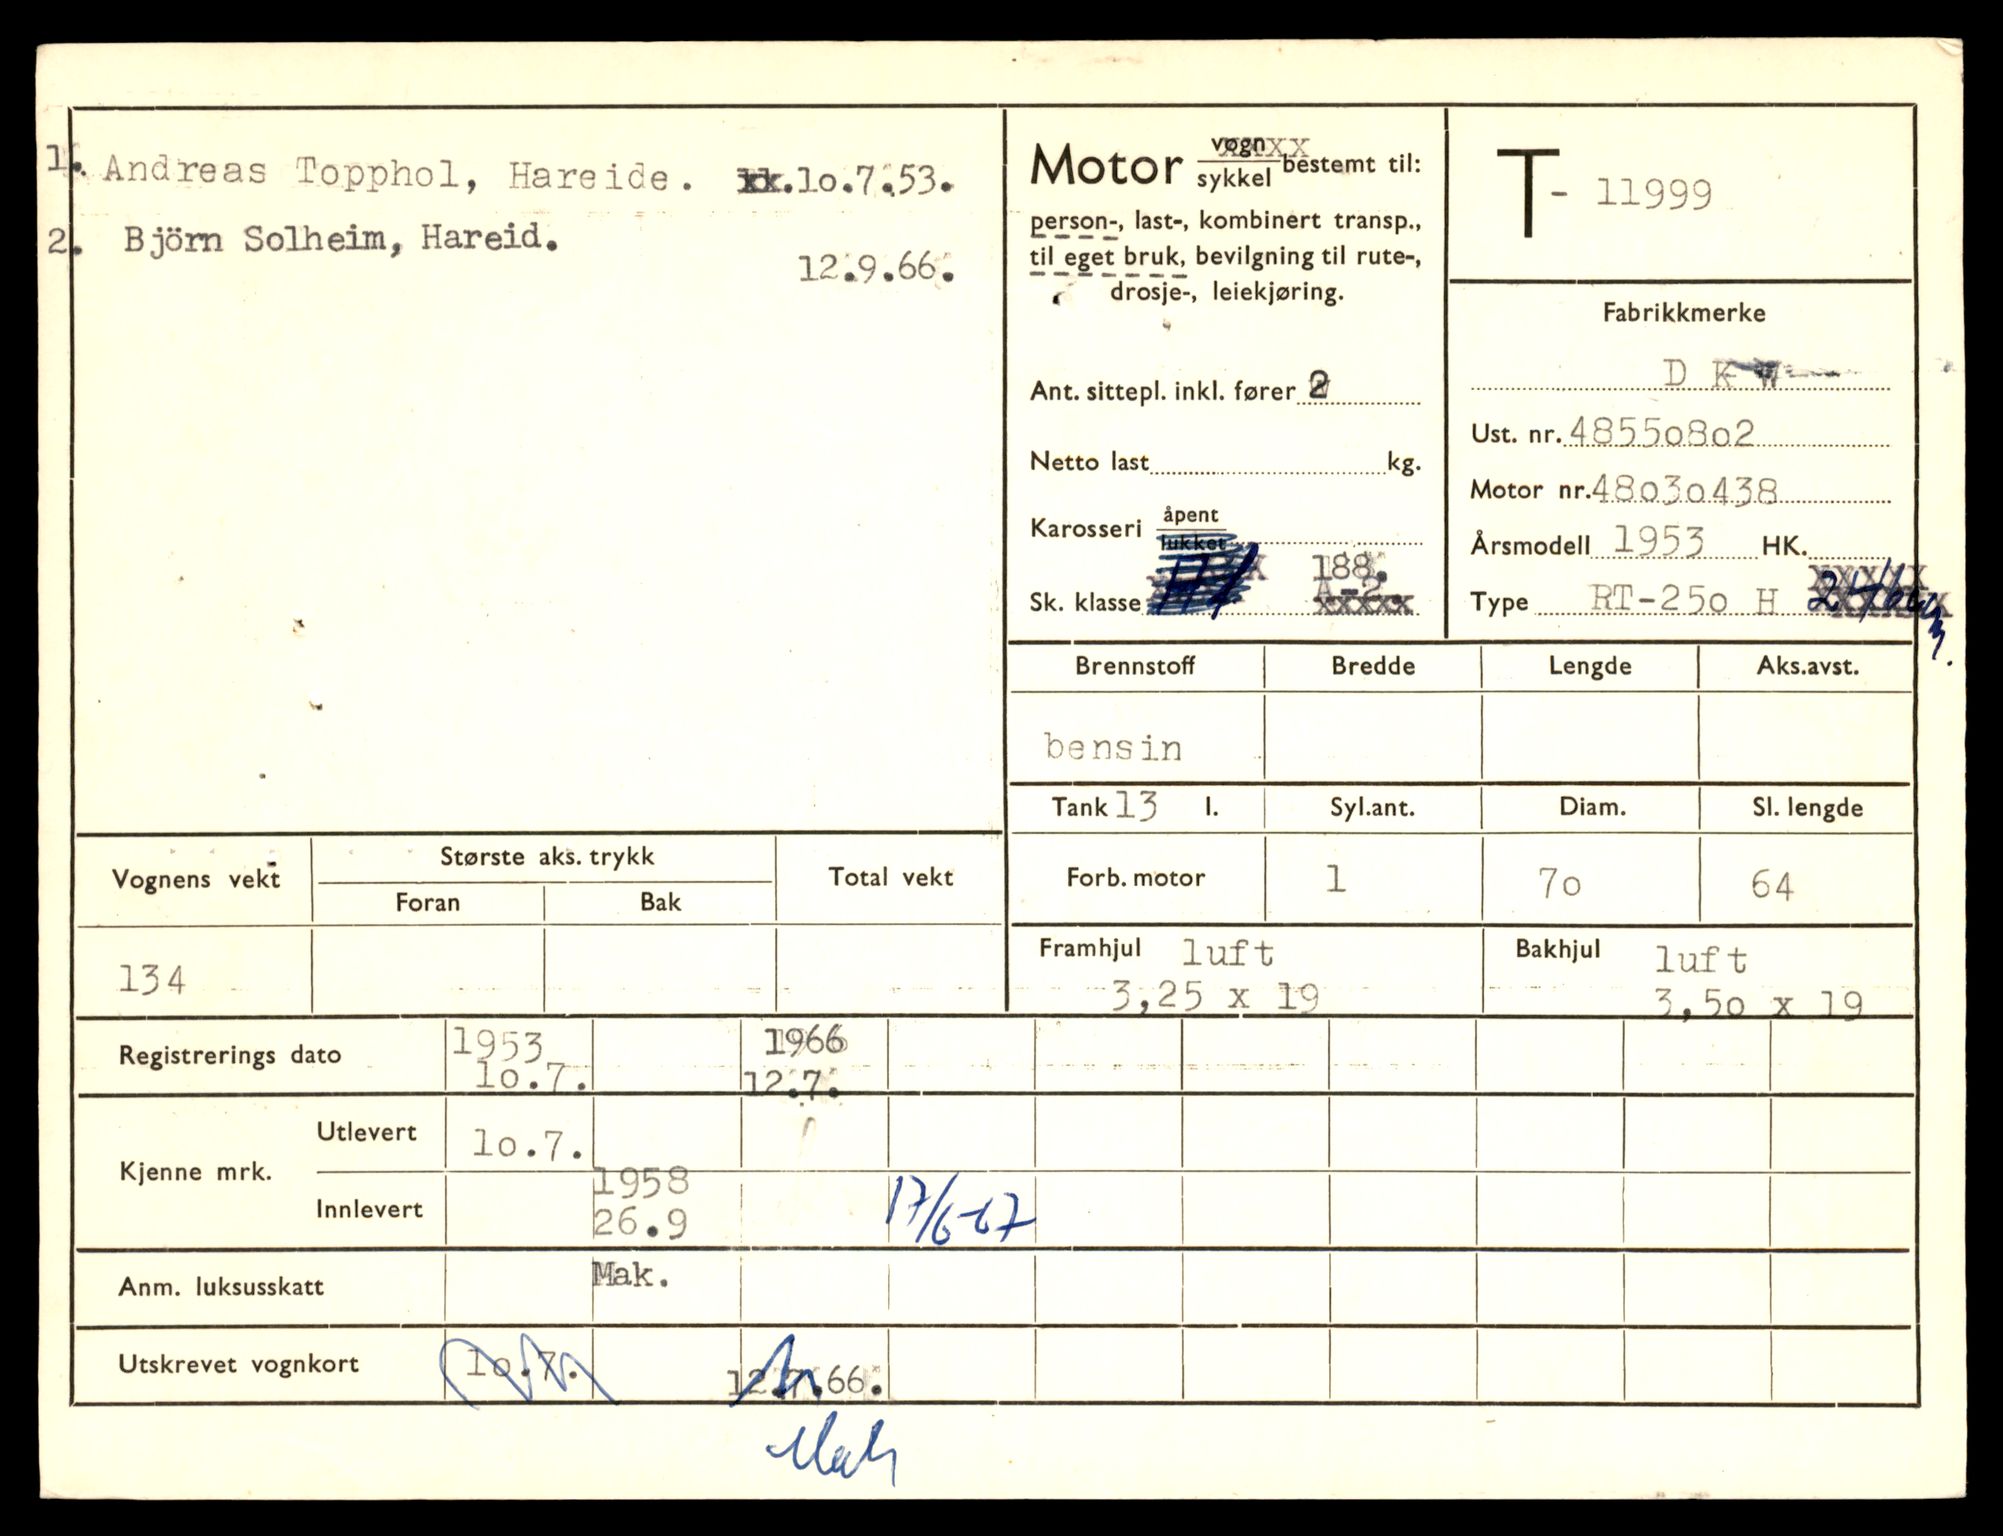 1. Andreas Topphol, Hareide. xx.lo.7.53.
2. Björn Solheim, Hareid.
12.9.66.
Motor vogn xxxxx sykkel bestemt til:
person-, last-, kombinert transp.,
til eget bruk, bevilgning til rute-,
drosje-, leiekjøring.
Ant. sittepl. inkl. fører 2
Netto last kg.
Karosseri åpent
lukket
188.
Sk. klasse A-2.
xxxxx
T - 11999
Fabrikkmerke
D K W
Ust. nr. 4855o8o2
Motor nr. 48o3o438
Årsmodell 1953 HK.
Type RT-25o H
Brennstoff Bredde Lengde Aks.avst.
bensin
Tank 13 l. Syl.ant. Diam. Sl. lengde
Forb. motor 1 7o 64
Framhjul luft Bakhjul luft
3,25 x 19 3,5o x 19
Vognens vekt Største aks. trykk Total vekt
Foran Bak
134
Registrerings dato 1953 1966
lo.7. 12.7.
Kjenne mrk. Utlevert lo.7.
Innlevert 1958 17/6-67
26.9
Anm. luksusskatt Mak.
Utskrevet vognkort lo.7. 12.7.66.
Mak